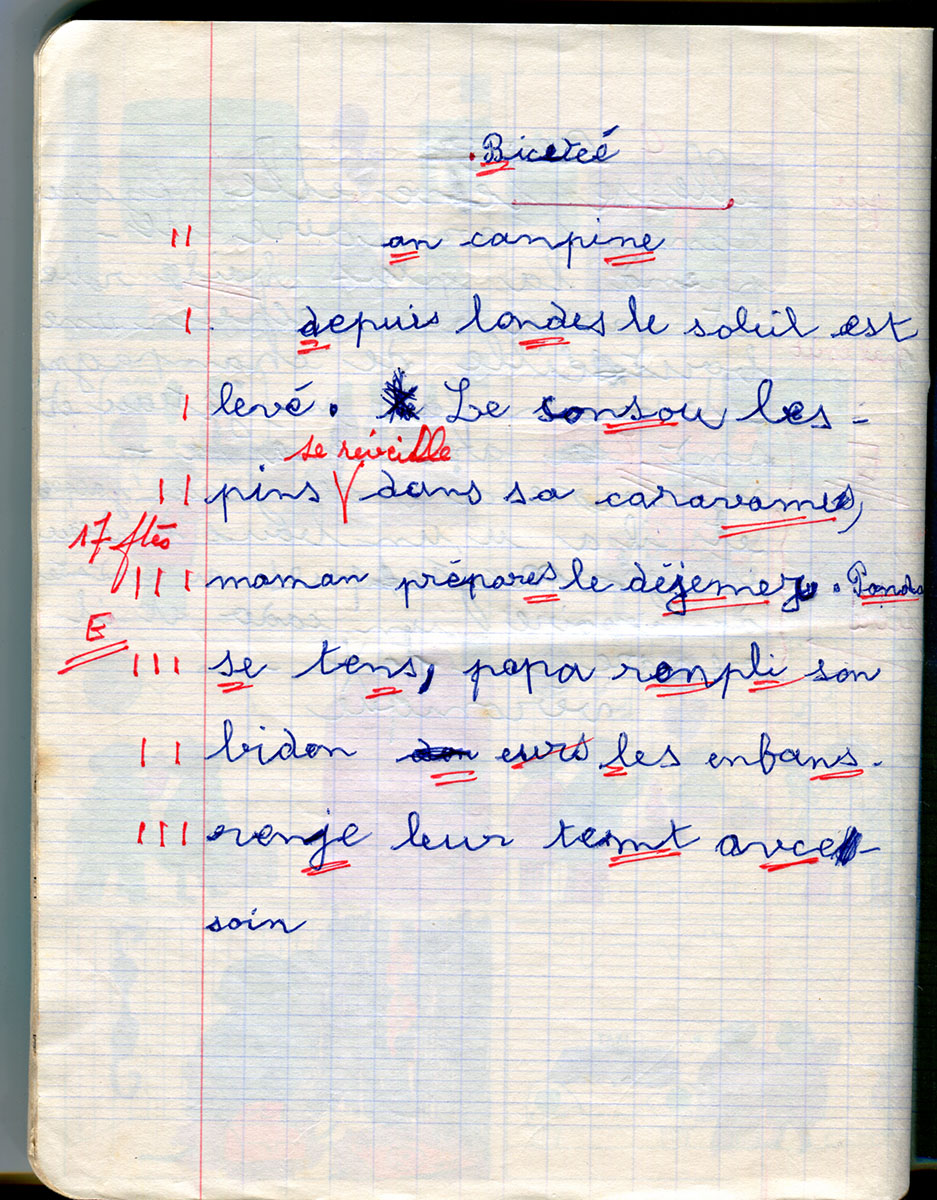 Bicetcé
an canpine
depuis londes le soleil est
levé. Le sonsou les-
se réveille
pins dans sa caravame,
17 ftes
maman prépares le déjemez. Pands
E
se tens, papa ronpli son
bidon eurs les enfans.
renje leur temt avce-
soin